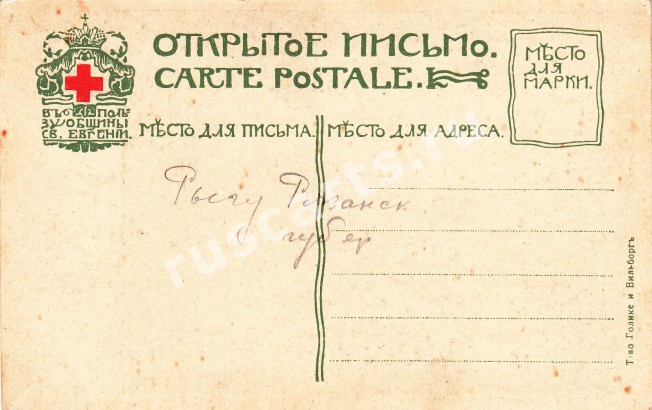 ОТКРЫТОЕ ПИСЬМО.
CARTE POSTALE.
МѢСТО
ДЛЯ
МАРКИ.
ВЪ ПОЛЬ
ЗУ ОБЩИНЫ
СВ. ЕВГЕНІИ.
МѢСТО ДЛЯ ПИСЬМА.
МѢСТО ДЛЯ АДРЕСА.
губер
Т-во Голике и Вильборгъ
ruscarts.ru